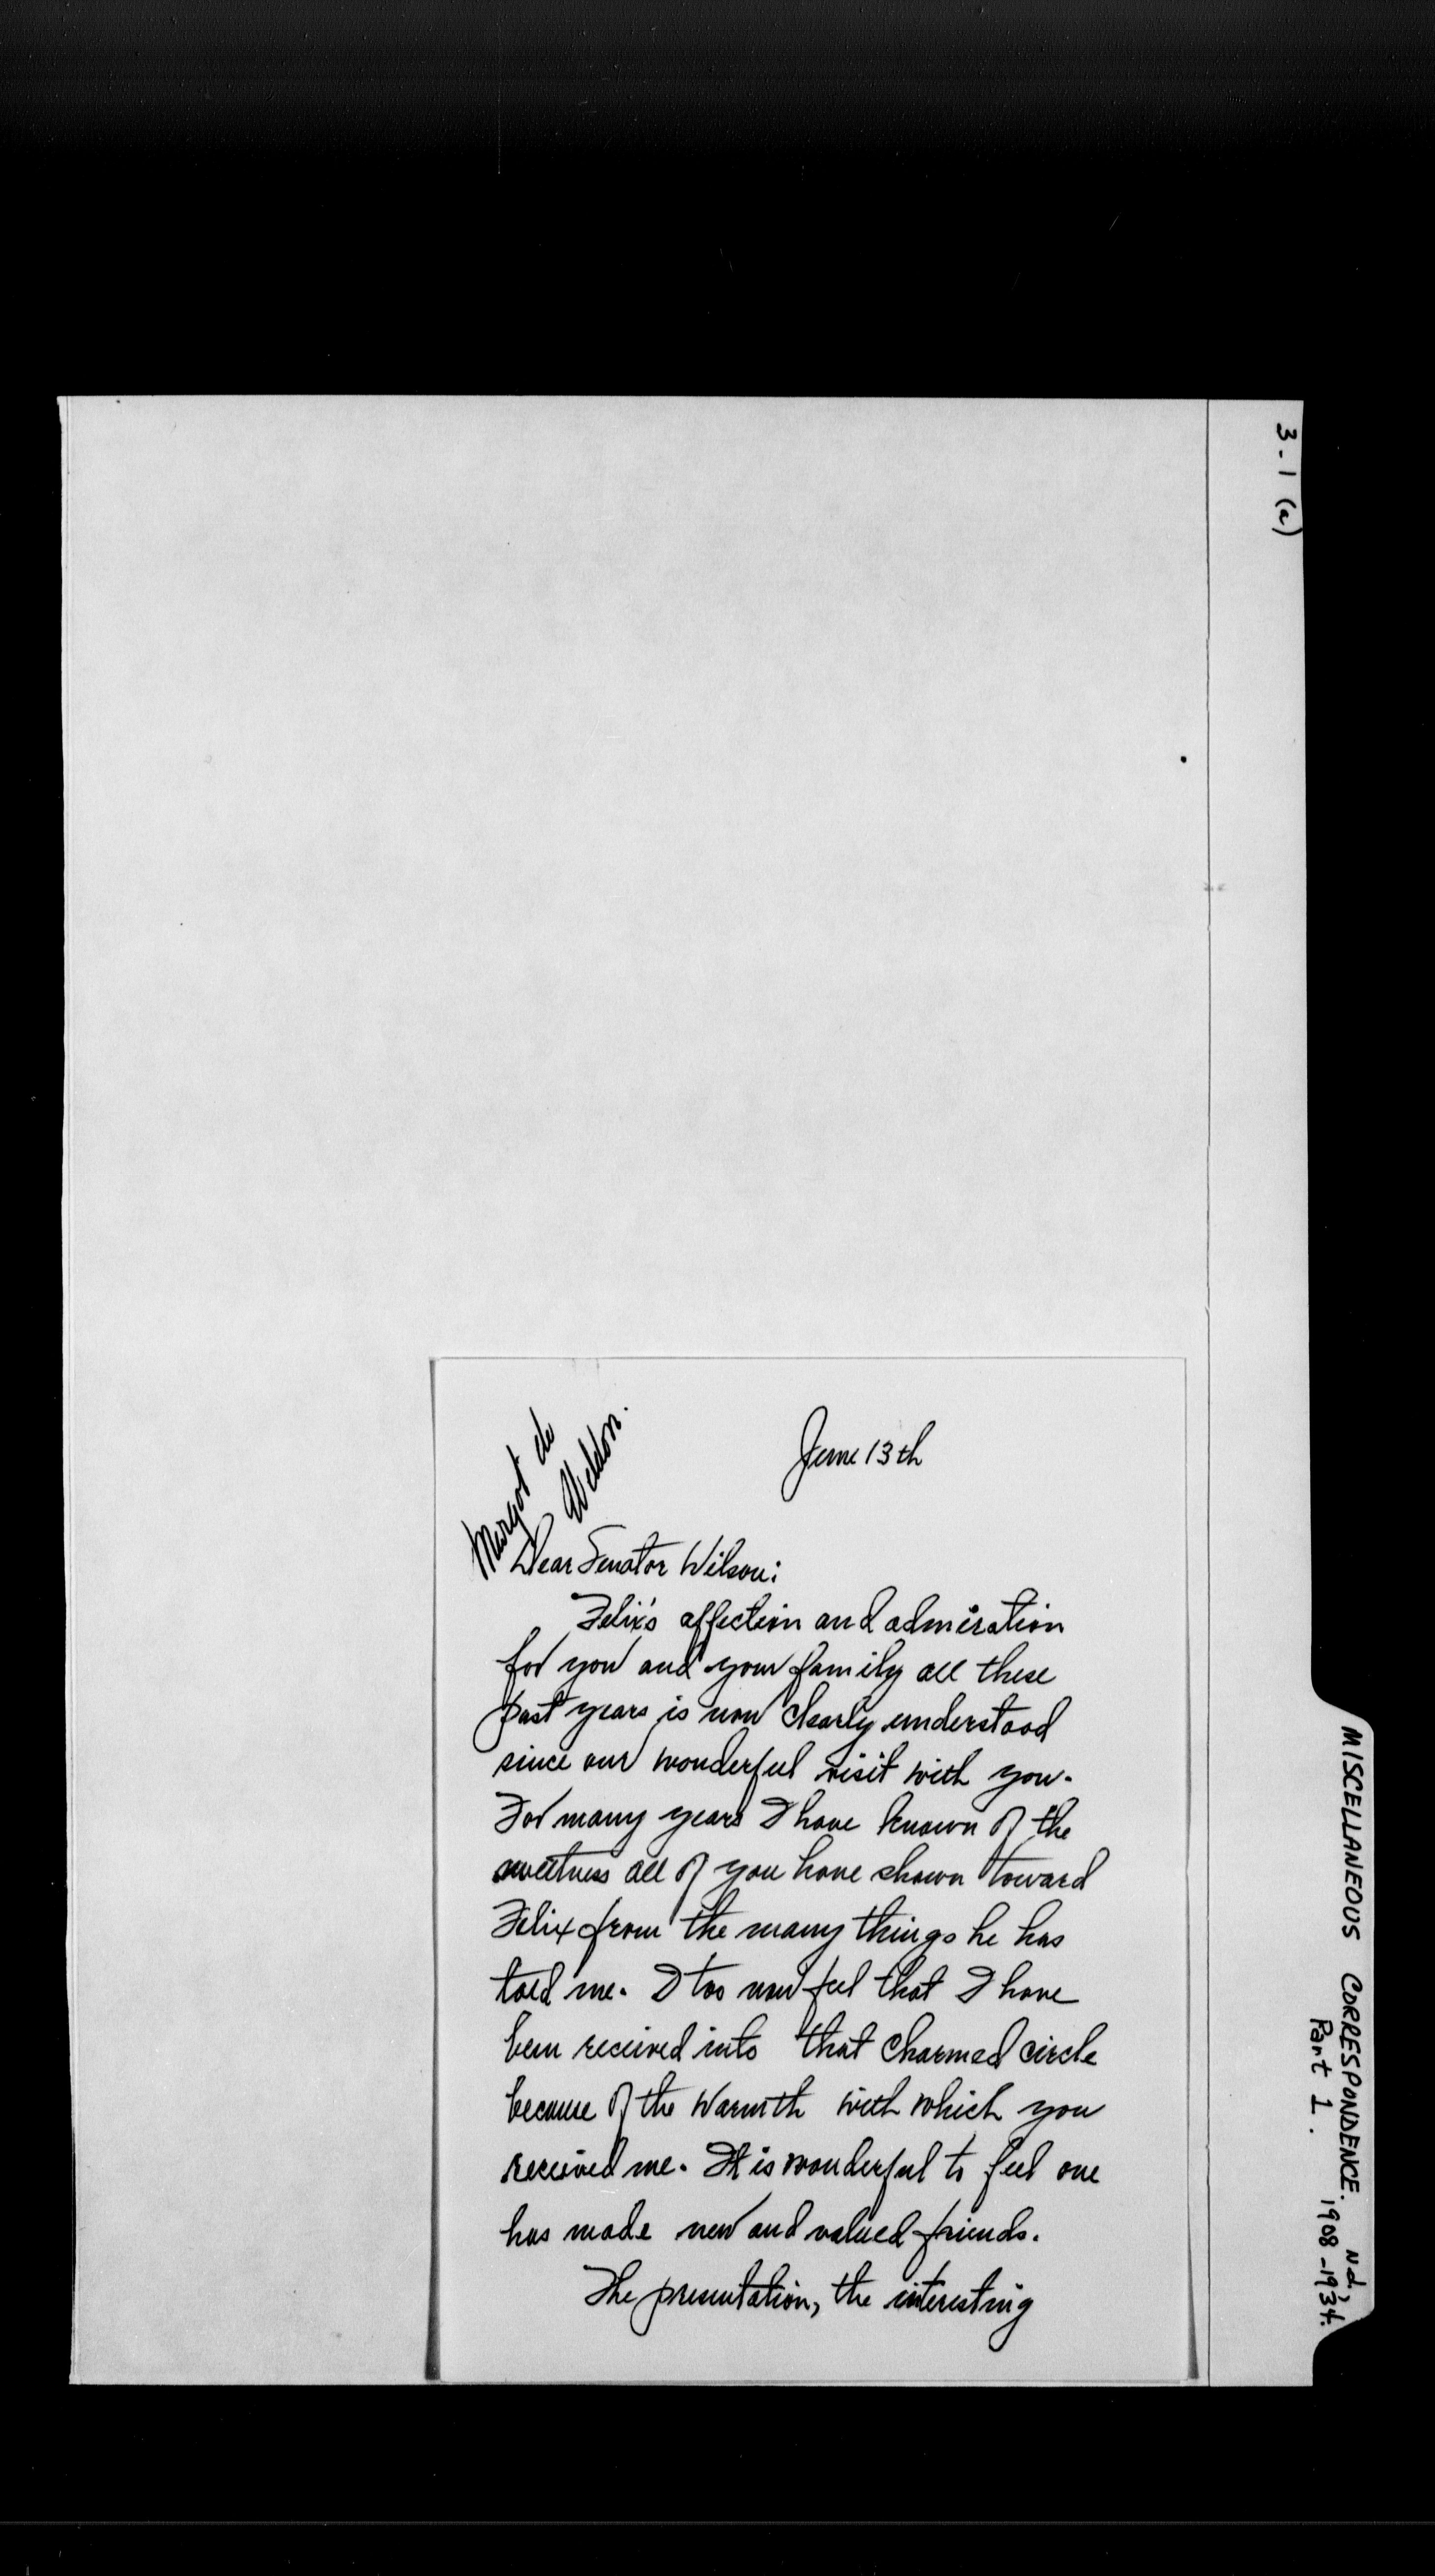 3-1 (a)
MISCELLANEOUS CORRESPONDENCE. n.d.,
1908-1934.
Part 1.
Margot de
Weldon.
June 13th
Dear Senator Wilson:
Felix's affection and admiration
for you and your family all these
past years is now clearly understood
since our wonderful visit with you.
For many years I have known of the
sweetness all of you have shown toward
Felix from the many things he has
told me. I too now feel that I have
been received into that charmed circle
because of the warmth with which you
received me. It is wonderful to feel one
has made new and valued friends.
The presentation, the interesting